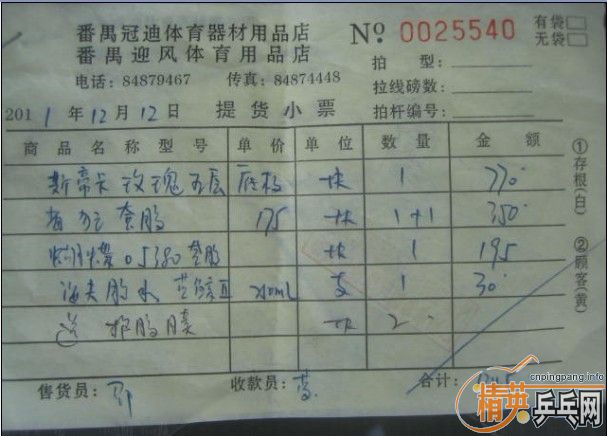 番禺冠迪体育器材用品店
番禺迎风体育用品店
电话：84879467 传真：84874448
№ 0025540
有袋
无袋
拍 型：
拉线磅数：
拍杆编号：
2011 年 12 月 12 日 提 货 小 票
商 品 名 称 型 号 单 价 单 位 数 量 金 额
斯帝卡 玫瑰 五层 底板 块 1 770
套胶 175 块 1+1 350
05380 套胶 块 1 195
海夫胶水 210mL 支 1 30
送 护胶膜 块 2
售货员： 收款员： 合计：
①存根(白)
②顾客(黄)
cnpingpang.info
精英乒乓网